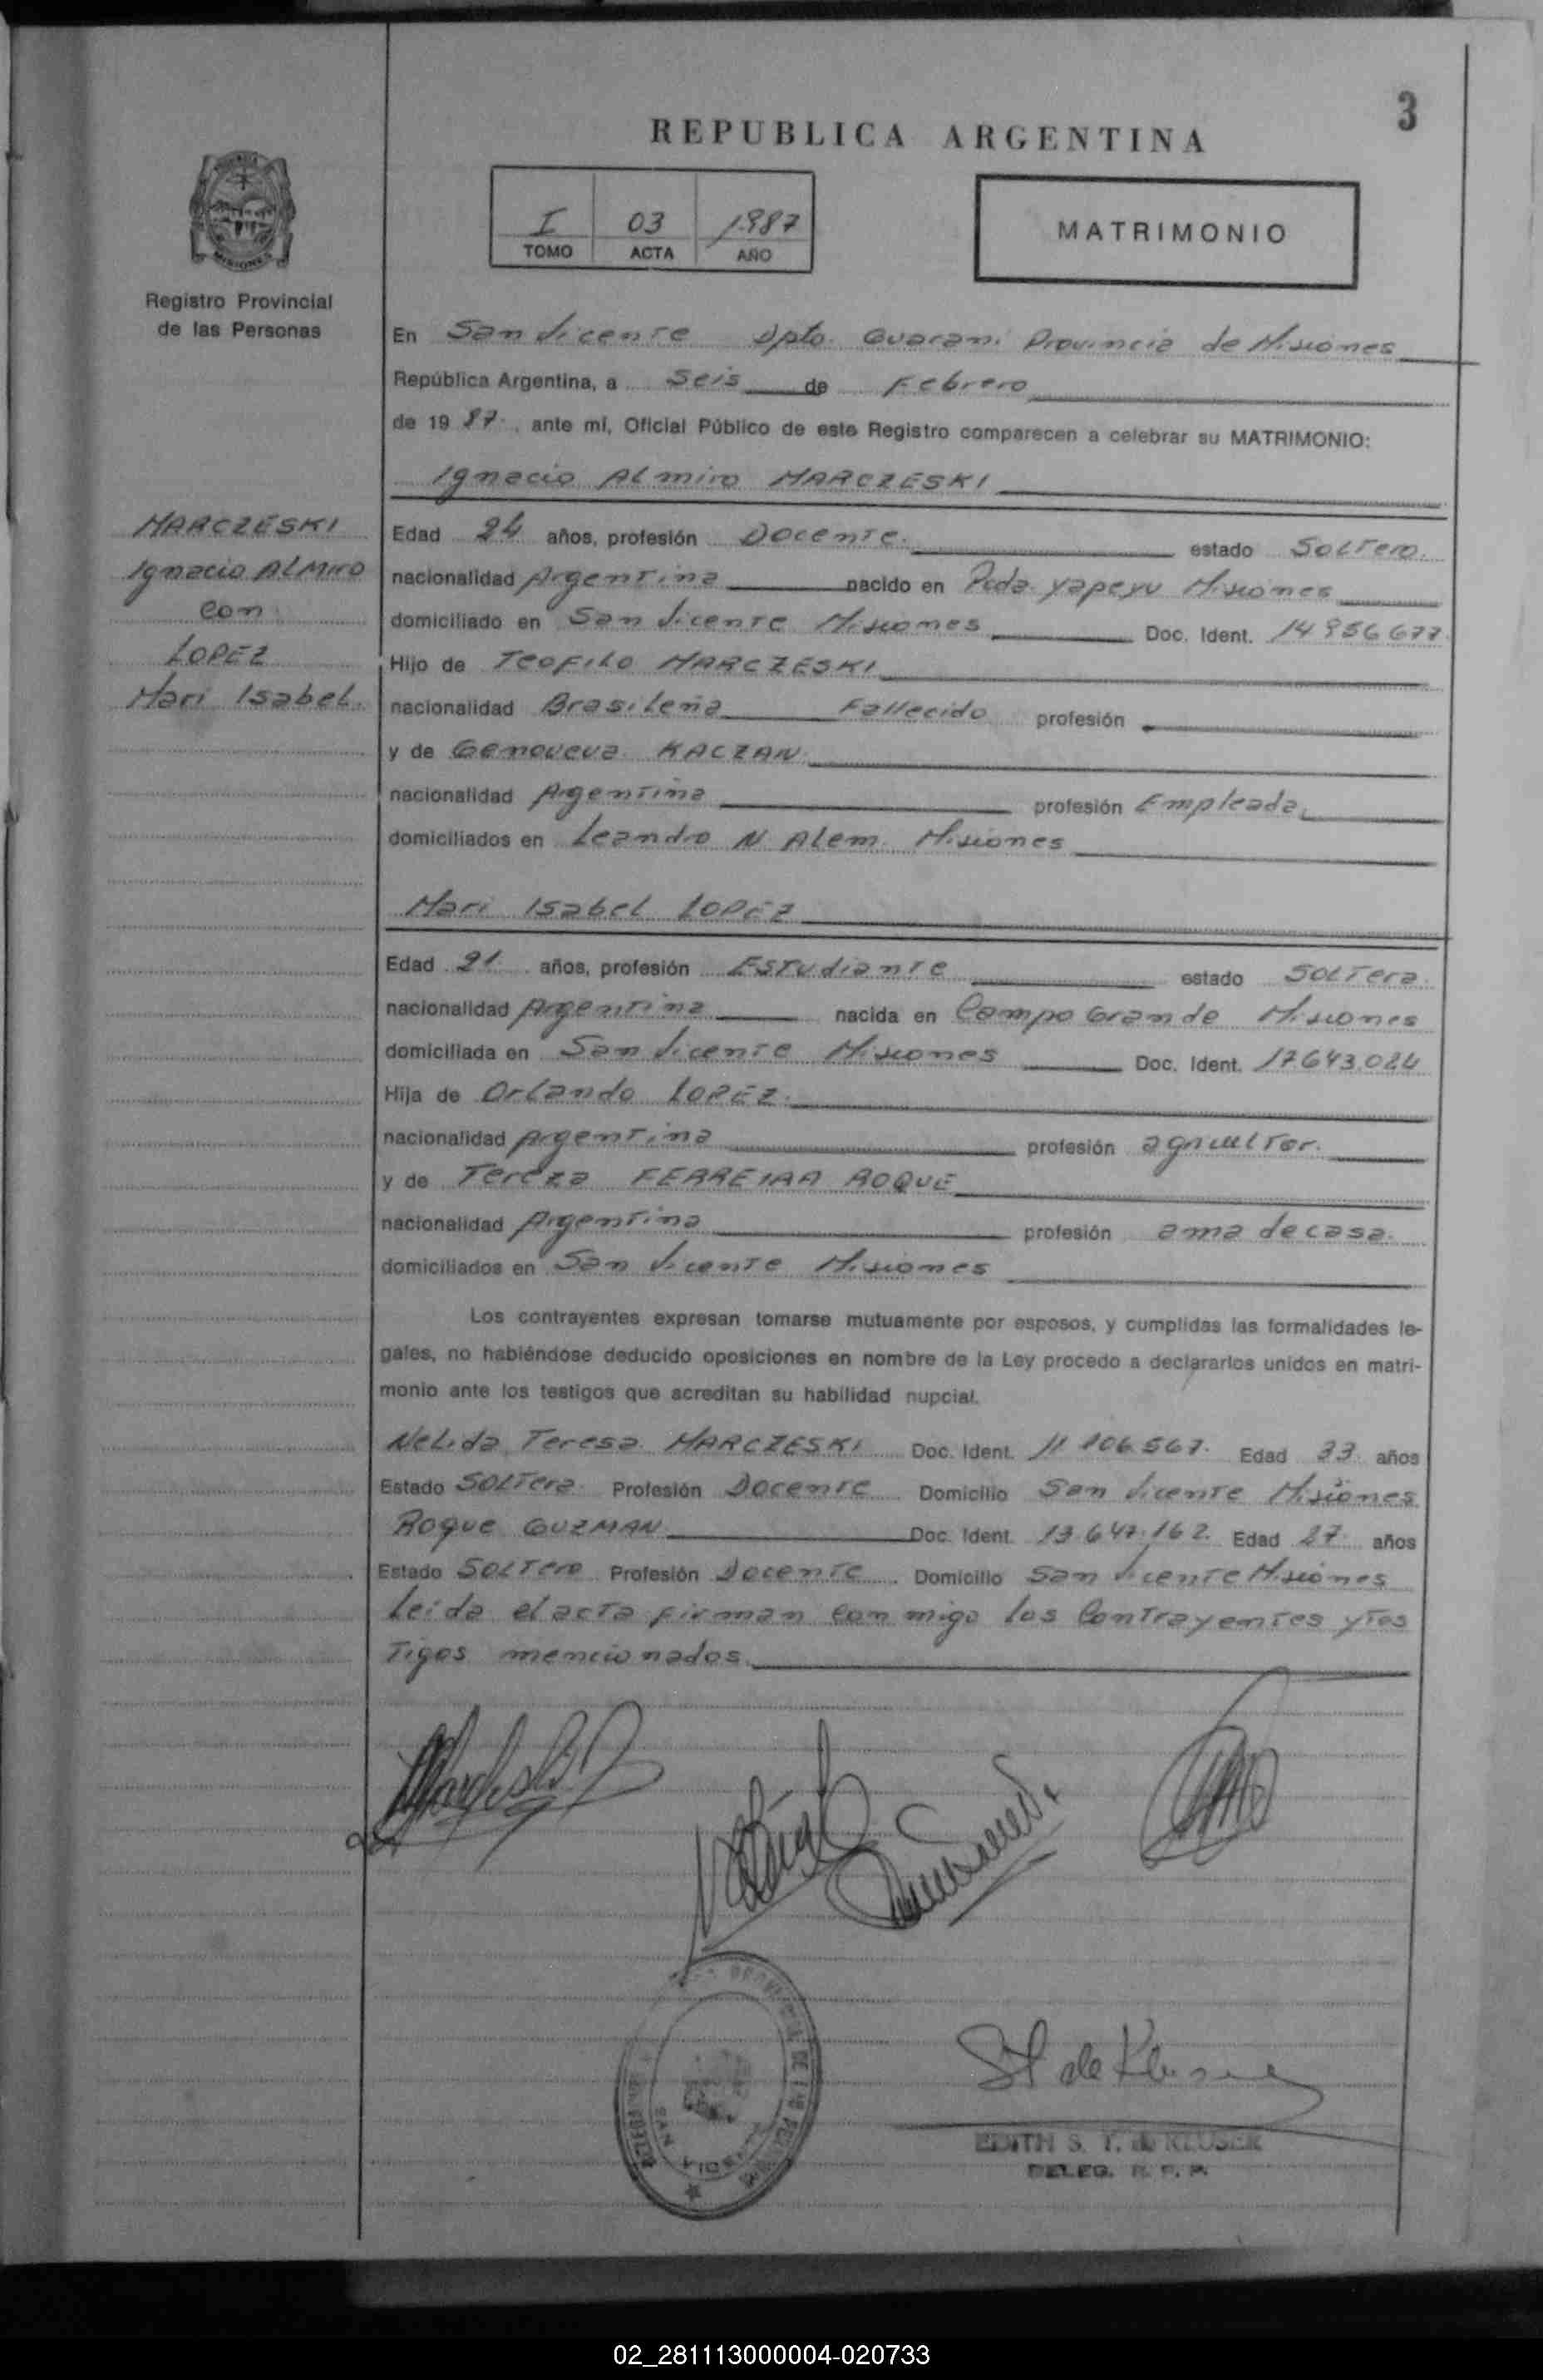 3
REPUBLICA ARGENTINA
I 03 1987
TOMO ACTA AÑO
MATRIMONIO
MISIONES
Registro Provincial
de las Personas
MARCZESKI
Ignacio ALMIRO
con
LOPEZ
Mari Isabel.
En San Vicente Dpto. Guarani Provincia de Misiones
República Argentina, a Seis de Febrero
de 19 87, ante mí, Oficial Público de este Registro comparecen a celebrar su MATRIMONIO:
Ignacio ALmiro MARCZESKI
Edad 24 años, profesión Docente. estado Soltero.
nacionalidad Argentina nacido en Pcda. Yapeyu Misiones
domiciliado en San Vicente Misiones Doc. Ident. 14 956 677
Hijo de Teofilo MARCZESKI
nacionalidad Brasileña Fallecido profesión
y de Genoveva KACZAN
nacionalidad Argentina profesión Empleada
domiciliados en Leandro N Alem. Misiones
Mari Isabel LOPEZ
Edad 21 años, profesión Estudiante estado Soltera.
nacionalidad Argentina nacida en Campo Grande Misiones
domiciliada en San Vicente Misiones Doc. Ident. 17.643.024
Hija de Orlando LOPEZ.
nacionalidad Argentina profesión agricultor.
y de Tereza FERREIRA ROQUE
nacionalidad Argentina profesión ama de casa.
domiciliados en San Vicente Misiones
Los contrayentes expresan tomarse mutuamente por esposos, y cumplidas las formalidades le-
gales, no habiéndose deducido oposiciones en nombre de la Ley procedo a declararlos unidos en matri-
monio ante los testigos que acreditan su habilidad nupcial.
Nelida Teresa MARCZESKI Doc. Ident. 11 106 567. Edad 33 años
Estado Soltera Profesión Docente Domicilio San Vicente Misiones
Roque GUZMAN Doc. Ident. 13.647.162 Edad 27 años
Estado Soltero Profesión Docente Domicilio San Vicente Misiones
Leida el acta firman con migo los Contrayentes y Tes
Tigos mencionados.
EDITH S. T. de KLUSER
DELEG. R. P. P.
02_281113000004-020733